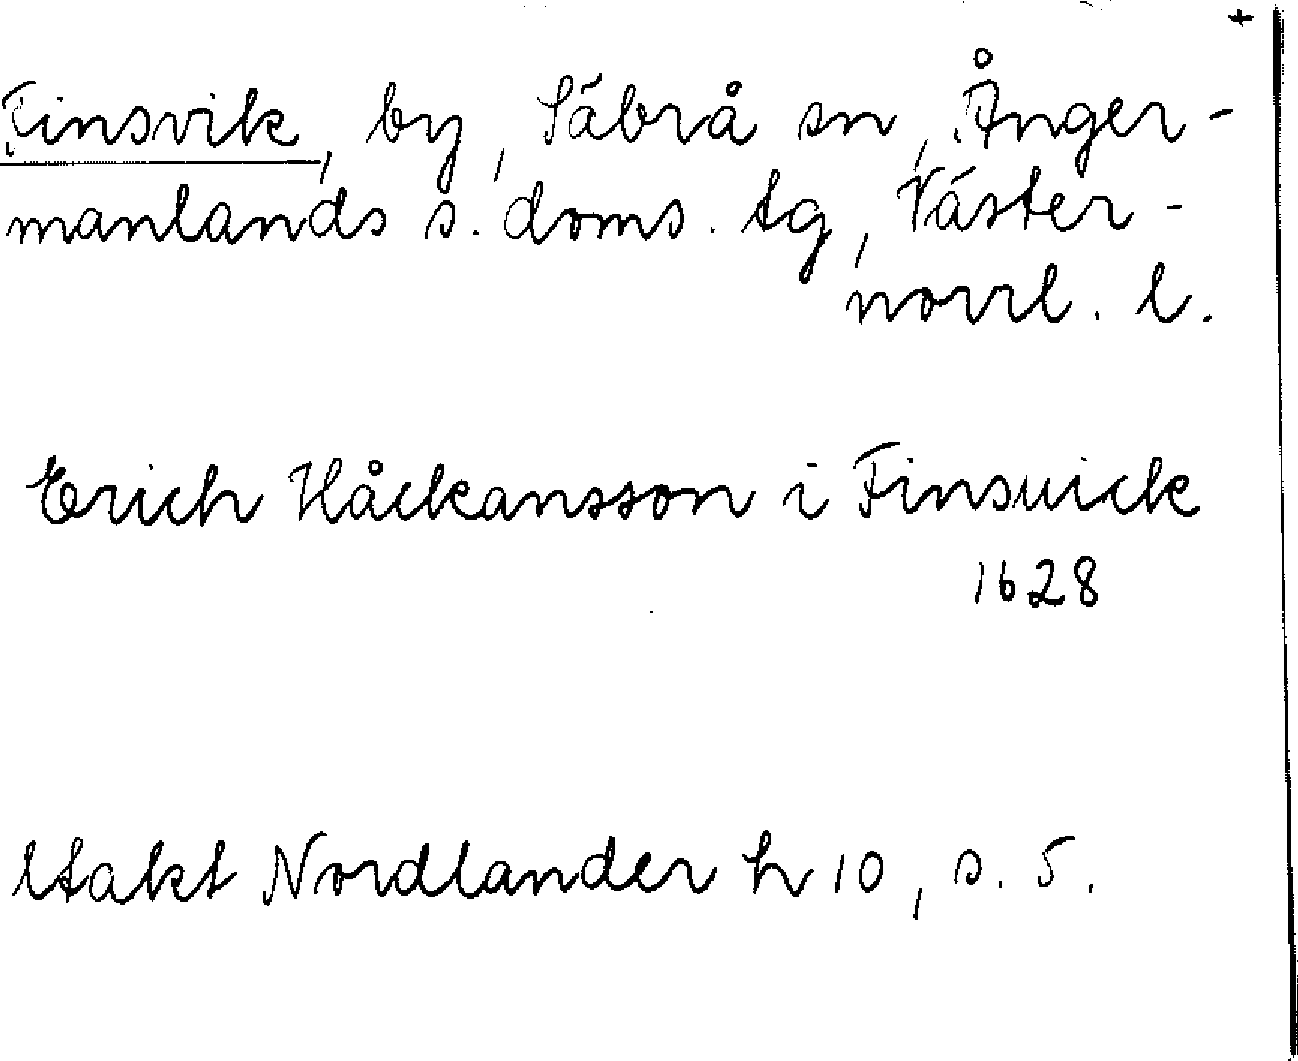 +
Finsvik, by, Säbrå sn, Ånger-
manlands s. doms. tg, Väster-
norrl. l.
Erich Håckansson i Finsuick
1628
Utakt Nordlander h 10, s. 5.